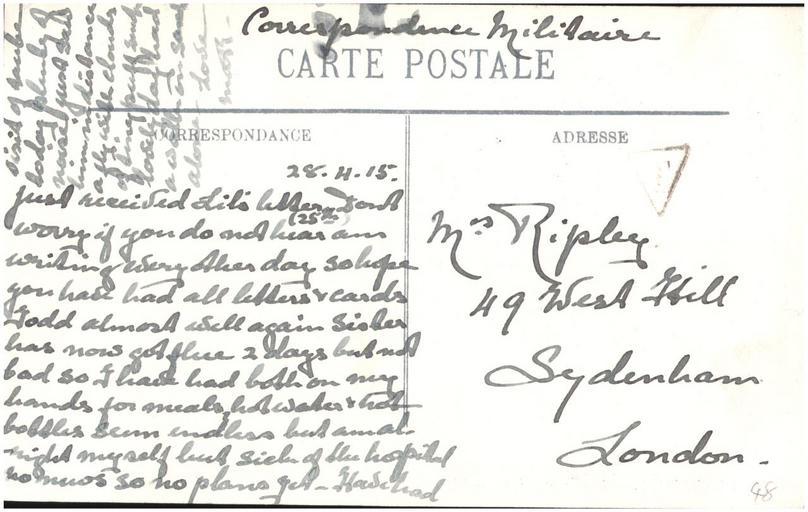 Correspondence Militaire
CARTE POSTALE
CORRESPONDANCE
ADRESSE
28.4.15.
Just received Lil's letter (25th) Dont
worry if you do not hear am
writing every other day so hope
you have had all letters & cards
Todd almost well again Sister
has now got flue 2 days but not
bad so I have had both on my
hands for meals, hot water & hot
bottles seem endless but am all
right myself but sick of the hospital
no news so no plans yet – Have had
visit of
today
noise just
him distance
a fly with
of being
lovely day had
a walk on sand
alone Love
Mrs Ripley
49 West Hill
Sydenham
London.
48